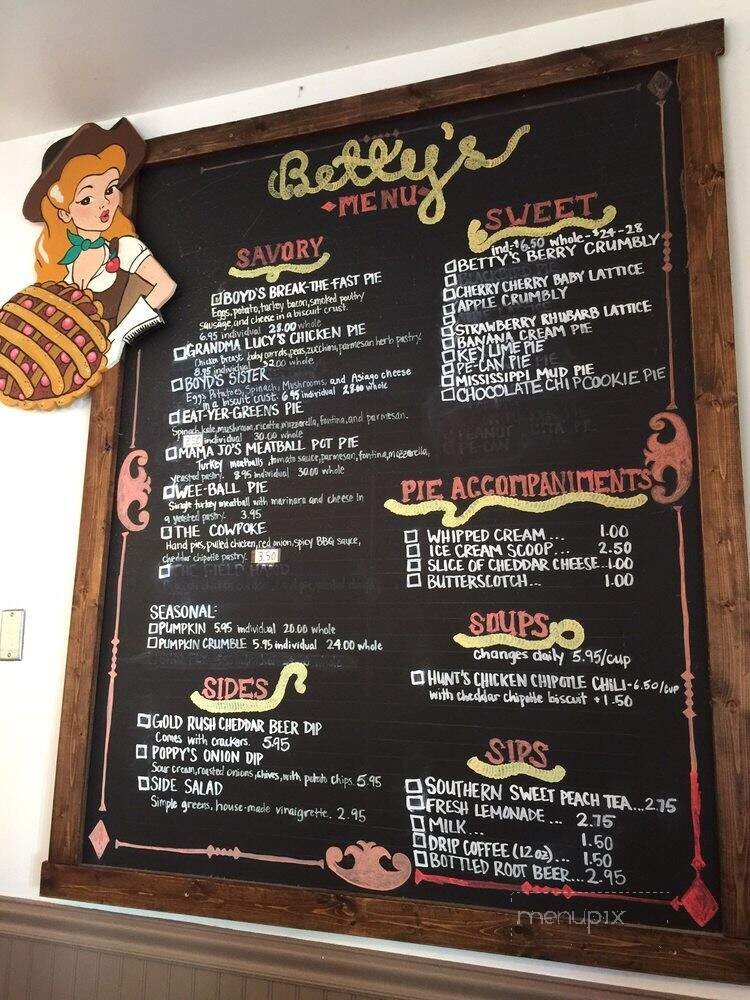 Betty's
MENU
SAVORY
BOYD'S BREAK-THE-FAST PIE
Eggs, potato, turkey bacon, smoked poultry
sausage, and cheese in a biscuit crust.
6.95 individual 28.00 whole
GRANDMA LUCY'S CHICKEN PIE
Chicken breast, baby carrots, peas, zucchini, parmesan herb pastry.
8.95 individual 32.00 whole
BOYD'S SISTER
Eggs, Potatoes, Spinach, Mushrooms, and Asiago cheese
in a biscuit crust. 6.95 individual 28.00 whole
EAT-YER-GREENS PIE
Spinach, kale, mushroom, ricotta, mozzarella, fontina, and parmesan.
individual 30.00 whole
MAMA JO'S MEATBALL POT PIE
Turkey meatballs, tomato sauce, parmesan, fontina, mozzarella,
yeasted pastry. 8.95 individual 30.00 whole
WEE-BALL PIE
Single turkey meatball with marinara and cheese in
a yeasted pastry. 3.95
THE COWPOKE
Hand pies, pulled chicken, red onion, spicy BBQ sauce,
cheddar chipotle pastry. 5.50
SEASONAL:
PUMPKIN 5.95 individual 20.00 whole
PUMPKIN CRUMBLE 5.95 individual 24.00 whole
SIDES
GOLD RUSH CHEDDAR BEER DIP
Comes with crackers. 5.95
POPPY'S ONION DIP
Sour cream, roasted onions, chives, with potato chips. 5.95
SIDE SALAD
Simple greens, house-made vinaigrette. 2.95
SWEET
ind-$6.50 whole-$24-28
BETTY'S BERRY CRUMBLY
CHERRY CHERRY BABY LATTICE
APPLE CRUMBLY
STRAWBERRY RHUBARB LATTICE
BANANA CREAM PIE
KEY LIME PIE
PE-CAN PIE
MISSISSIPPI MUD PIE
CHOCOLATE CHIP COOKIE PIE
PIE ACCOMPANIMENTS
WHIPPED CREAM... 1.00
ICE CREAM SCOOP... 2.50
SLICE OF CHEDDAR CHEESE..1.00
BUTTERSCOTCH... 1.00
SOUPS
changes daily 5.95/cup
HUNT'S CHICKEN CHIPOTLE CHILI-6.50/cup
with cheddar chipotle biscuit +1.50
SIPS
SOUTHERN SWEET PEACH TEA...2.75
FRESH LEMONADE... 2.75
MILK... 1.50
DRIP COFFEE (12oz)... 1.50
BOTTLED ROOT BEER...2.95
menupix